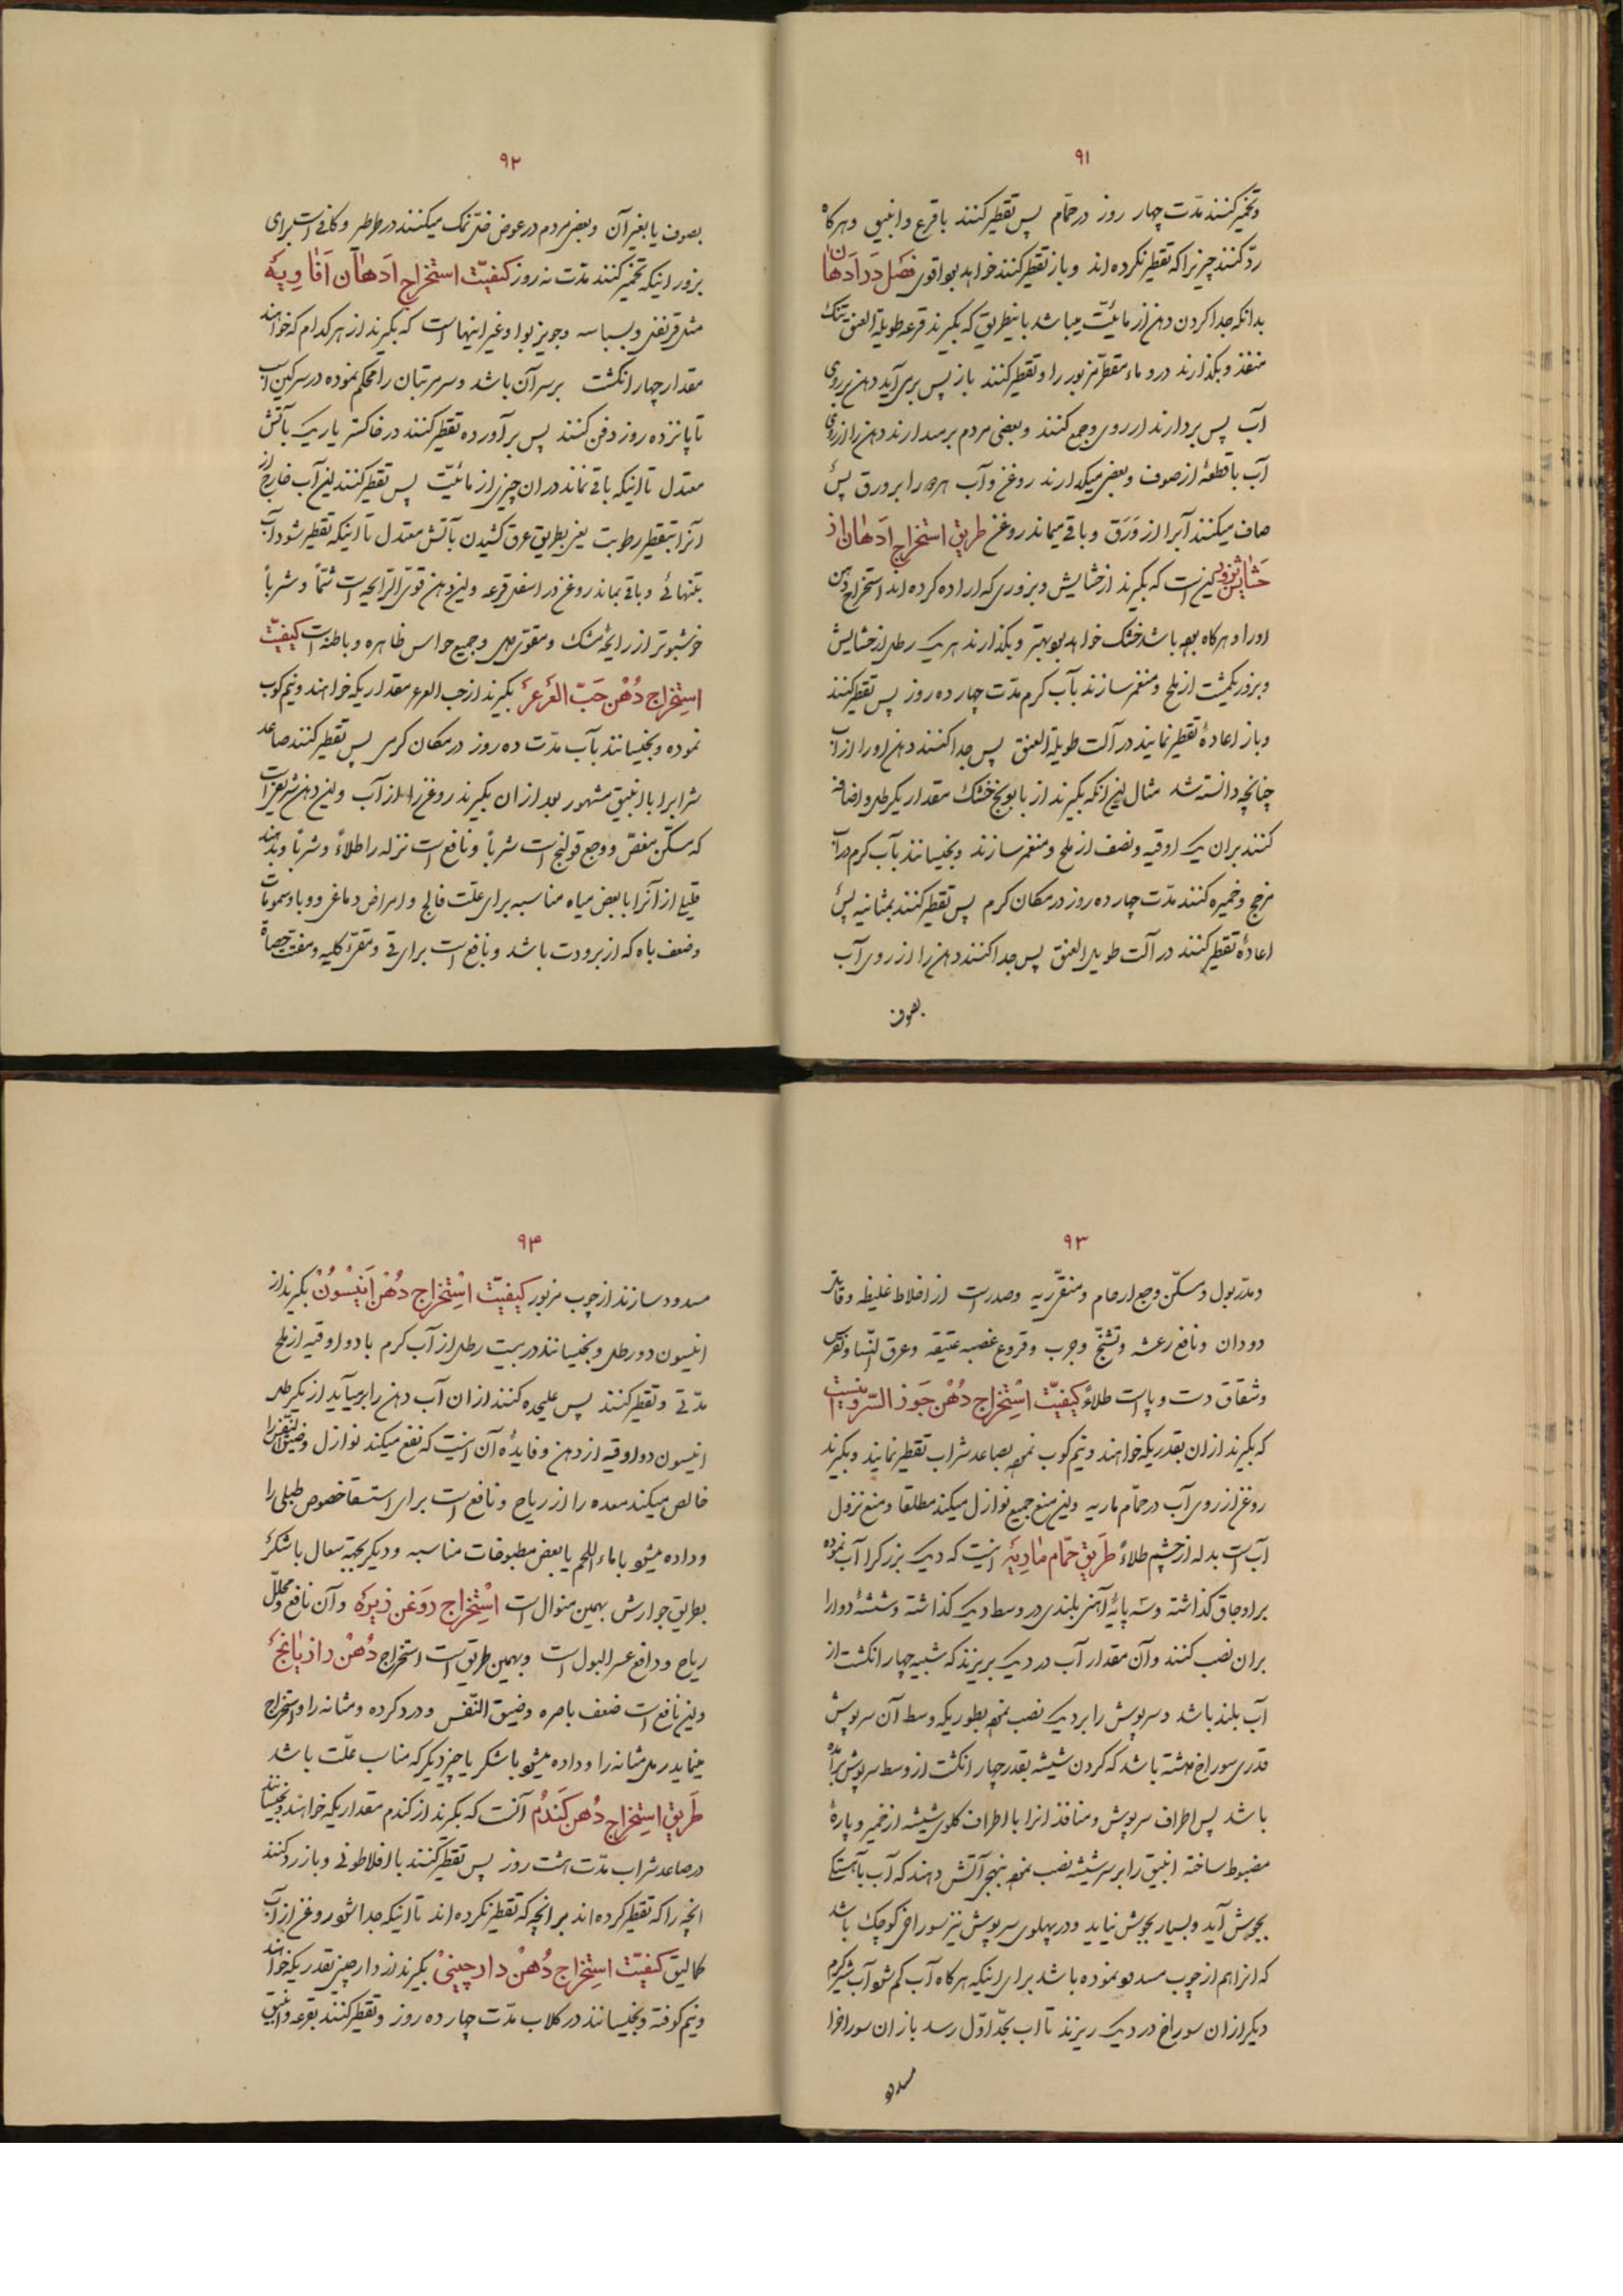 ۹۱
وتخمیر کنند مدّت چهار روز در حمّام پس تقطیر کنند با قرع وانبیق وهرکاه
ردّ کنند چیزیرا که تقطیر نکرده اند وباز تقطیر کنند خواهد بود اقوی فصل در ادهان
بدانکه جدا کردن دهن از مائیّت میباشد باینطریق که بکیرند قرعه طویلة العنق تنک
منفذ وبکذارند درو ماء مقطّر مزبور را وتقطیر کنند باز پس برمی آید دهن بر روی
آب پس بردارند از روی وجمع کنند وبعضی مردم برمیدارند دهن را از روی
آب با قطعهٔ از صوف وبعضی میکذارند روغن وآب هردو را بر ورق پس
صاف میکنند آبرا از وَرَق وباقی میماند روغن طریق استخراج ادهان از
حشایش وبزور این است که بکیرند از حشایش وبزوری که اراده کرده اند استخراج دهن
اورا وهرکاه بوده باشد خشک خواهد بود بهتر وبکذارند هر یک رطل از حشایش
وبزور یکمشت از ملح ومنغمر سازند بآب کرم مدّت چهارده روز پس تقطیر کنند
وباز اعادهٔ تقطیر نمایند در آلت طویلة العنق پس جدا کنند دهن اورا از آب
چنانچه دانسته شد مثال این آنکه بکیرند از بابونج خشک مقدار یکرطل واضافه
کنند بران یک اوقیه ونصف از ملح ومنغمر سازند وبخیسانند بآب کرم در آب
مزج وخمیره کنند مدّت چهارده روز در مکان کرم پس تقطیر کنند بمثانیه پس
اعادهٔ تقطیر کنند در آلت طویل العنق پس جدا کنند دهن را از روی آب
بصوف
۹۲
بصوف یا بغیر آن وبعضی مردم در عوض نمک میکنند در طرطر وکافی است برای
بزور اینکه تخمیر کنند مدّت نه روز کیفیّت استخراج ادهان افاویه
مثل قرنفل وبسباسه وجوز بوا وغیر اینهاست که بکیرند از هر کدام که خواهند
مقدار چهار انکشت برسر آن باشد وسر مرتبان را محکم نموده در سرکین اسب
تا پانزده روز دفن کنند پس برآورده تقطیر کنند در خاکستر یا ریک بآتش
معتدل تا اینکه باقی نماند در ان چیزی از مائیّت پس تقطیر کنند این آب خارج از
آنرا بتقطیر رطوبت یعنی بطریق عرق کشیدن بآتش معتدل تا اینکه تقطیر شود آب
بتنهائی وباقی بماند روغن در اسفل قرعه واین دهن قوی الرایحه است شمّاً وشرباً
خوشبوتر از رایحهٔ مشک ومقوّی دل وجمیع حواس ظاهره وباطنه است کیفیّت
استخراج دُهْن حَبّ العَرعَر بکیرند از حب العرعر مقداریکه خواهند ونیم کوب
نموده وبخیسانند بآب مدّت ده روز در مکان کرمی پس تقطیر کنند صاعد
شرابرا با انبیق مشهور بعد از ان بکیرند روغن را از آب واین دهن شریف است
که مسکّن مغص ووجع قولنج است شرباً ونافع است نزله را طلاءً وشرباً وبدهند
قلیلی از آنرا با بعض میاه مناسبه برای علّت فالج وامراض دماغی ووبا وسمومات
وضعف باه که از برودت باشد ونافع است برای قی ومقوّی کلیه ومفتّت حصاة
۹۳
ومدرّ بول ومسکّن وجع ارحام ومنقّی ریه وصدر است از اخلاط غلیظه وقاتل
دودان ونافع رعشه وتشنّج وجرب وقروع عصبه عتیقه وعرق النّسا ونقرس
وشقاق دست وپا است طلاءً کیفیّت استخراج دُهْن جَوز السّرو اینست
که بکیرند از ان بقدریکه خواهند ونیم کوب نموده بصاعد شراب تقطیر نمایند وبکیرند
روغن از روی آب در حمّام ماریه واین منع جمیع نوازل میکند مطلقا ومنع نزول
آب است بدله از چشم طلاءً طریق حمّام ماریه اینست که دیک بزرکرا آب نموده
بر اوجاق کذاشته وسه پایهٔ آهنی بلندی در وسط دیک کذاشته وشیشهٔ دوارا
بران نصب کنند وآن مقدار آب در دیک بریزند که شیشه چهار انکشت از
آب بلند باشد وسرپوش را بر دیک نصب نموده بطوریکه وسط آن سرپوش
قدری سوراخ داشته باشد که کردن شیشه بقدر چهار انکشت از وسط سرپوش برآمده
باشد پس اطراف سرپوش ومنافذ انرا با اطراف کلوی شیشه از خمیر وپارهٔ
مضبوط ساخته انبیق را بر سر شیشه نصب نموده بنهجی آتش دهند که آب باهستکی
بجوش آید وبسیار بجوش نیاید ودر پهلوی سرپوش نیز سوراخی کوچک باشد
که انرا هم از چوب مسدود نموده باشد برای اینکه هرکاه آب کم شود آب شیرکرم
دیکر از ان سوراخ در دیک ریزند تا اب بحدّ اوّل رسد باز ان سوراخرا
مسدود
۹۴
مسدود سازند از چوب مزبور کیفیّت اسْتِخراج دُهْن اَنیسُونْ بکیرند از
انیسون دو رطل وبخیسانند در بیست رطل از آب کرم با دو اوقیه از ملح
مدّتی وتقطیر کنند پس علیحده کنند از ان آب دهن را برمیآید از یکرطل
انیسون دو اوقیه از دهن وفایدهٔ آن اینست که نفع میکند نوازل وضیق النّفس را
خالص میکند معده را از ریاح ونافع است برای استسقا خصوص طبلی را
وداده میشود با ماء اللحم یا بعض مطبوخات مناسبه ودیکر بجهة سعال با شکر
بطریق جوارش بهمین منوال است اسْتِخراج رَوغن زیره وآن نافع ومحلّل
ریاح ودافع عسر البول است وبهمین طریق است استخراج دُهْن رازیانج
واین نافع است ضعف باصره وضیق النّفس ودرد کرده ومثانه را واستخراج
مینماید رمل مثانه را وداده میشود با شکر یا چیز دیکر که مناسب علّت باشد
طَریق استِخراج دُهن کَندُم آنست که بکیرند از کندم مقداریکه خواهند وبخیسانند
در صاعد شراب مدّت هشت روز پس تقطیر کنند با افلاطونی وباز رد کنند
انچه را که تقطیر کرده اند بر انچه که تقطیر نکرده اند تا اینکه جدا شود روغن از آب
کمالیق کیفیّت استِخراج دُهْن دارچینیْ بکیرند از دارچینی بقدریکه خواهند
ونیم کوفته وبخیسانند در کلاب مدّت چهارده روز وتقطیر کنند بقرعه وانبیق